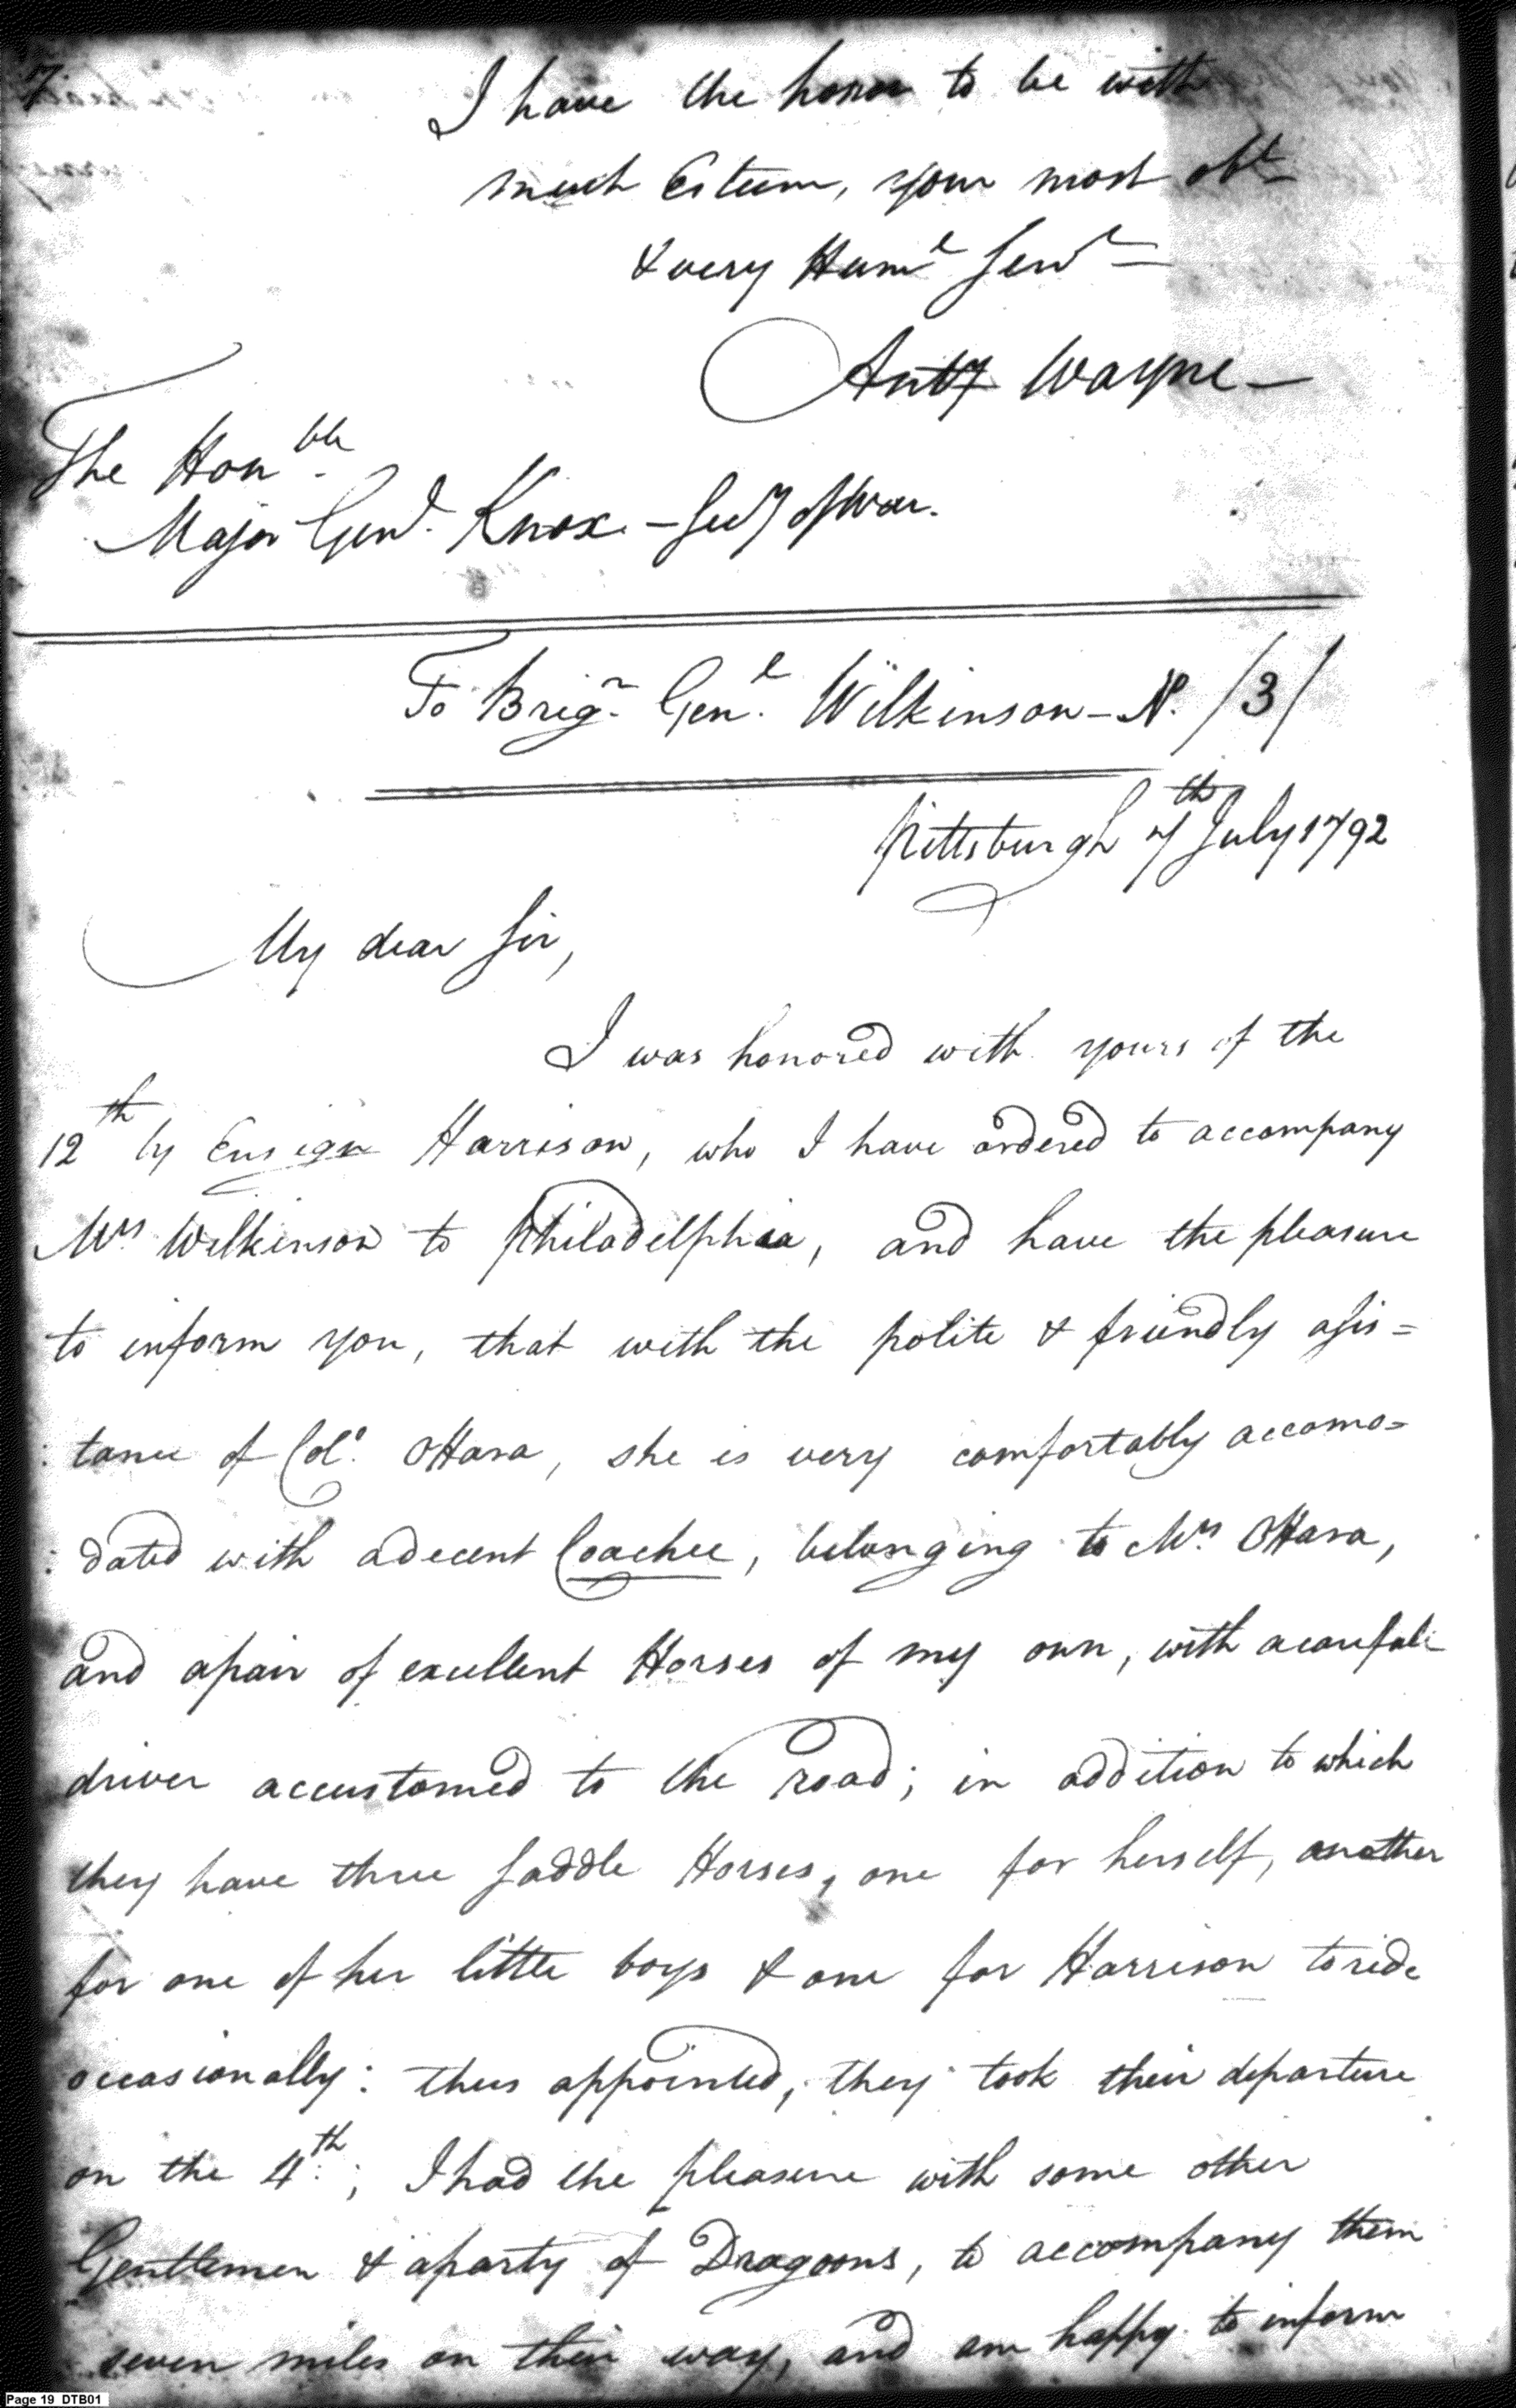 7.
I have the honor to be with
much Esteem, your most obt
& very Huml Servt
Anty Wayne
The Honble
Major Genl. Knox - Secy of War.
To Brigr Genl. Wilkinson - No. /3/
Pittsburgh 7th July 1792
My dear Sir,
I was honored with yours of the
12th by Ensign Harrison, who I have ordered to accompany
Mrs Wilkinson to Philadelphia, and have the pleasure
to inform you, that with the polite & friendly assis=
: tance of Colo. OHara, she is very comfortably accomo=
: dated with a decent Coachee, belonging to Mrs OHara,
and a pair of excellent Horses of my own, with a careful
driver accustomed to the road; in addition to which
they have three saddle Horses, one for herself, another
for one of her little boys & one for Harrison to ride
occasionally: thus appointed, they took their departure
on the 4th.; I had the pleasure with some other
Gentlemen & a party of Dragoons, to accompany them
seven miles on their way, and am happy to inform
Page 19 DTB01